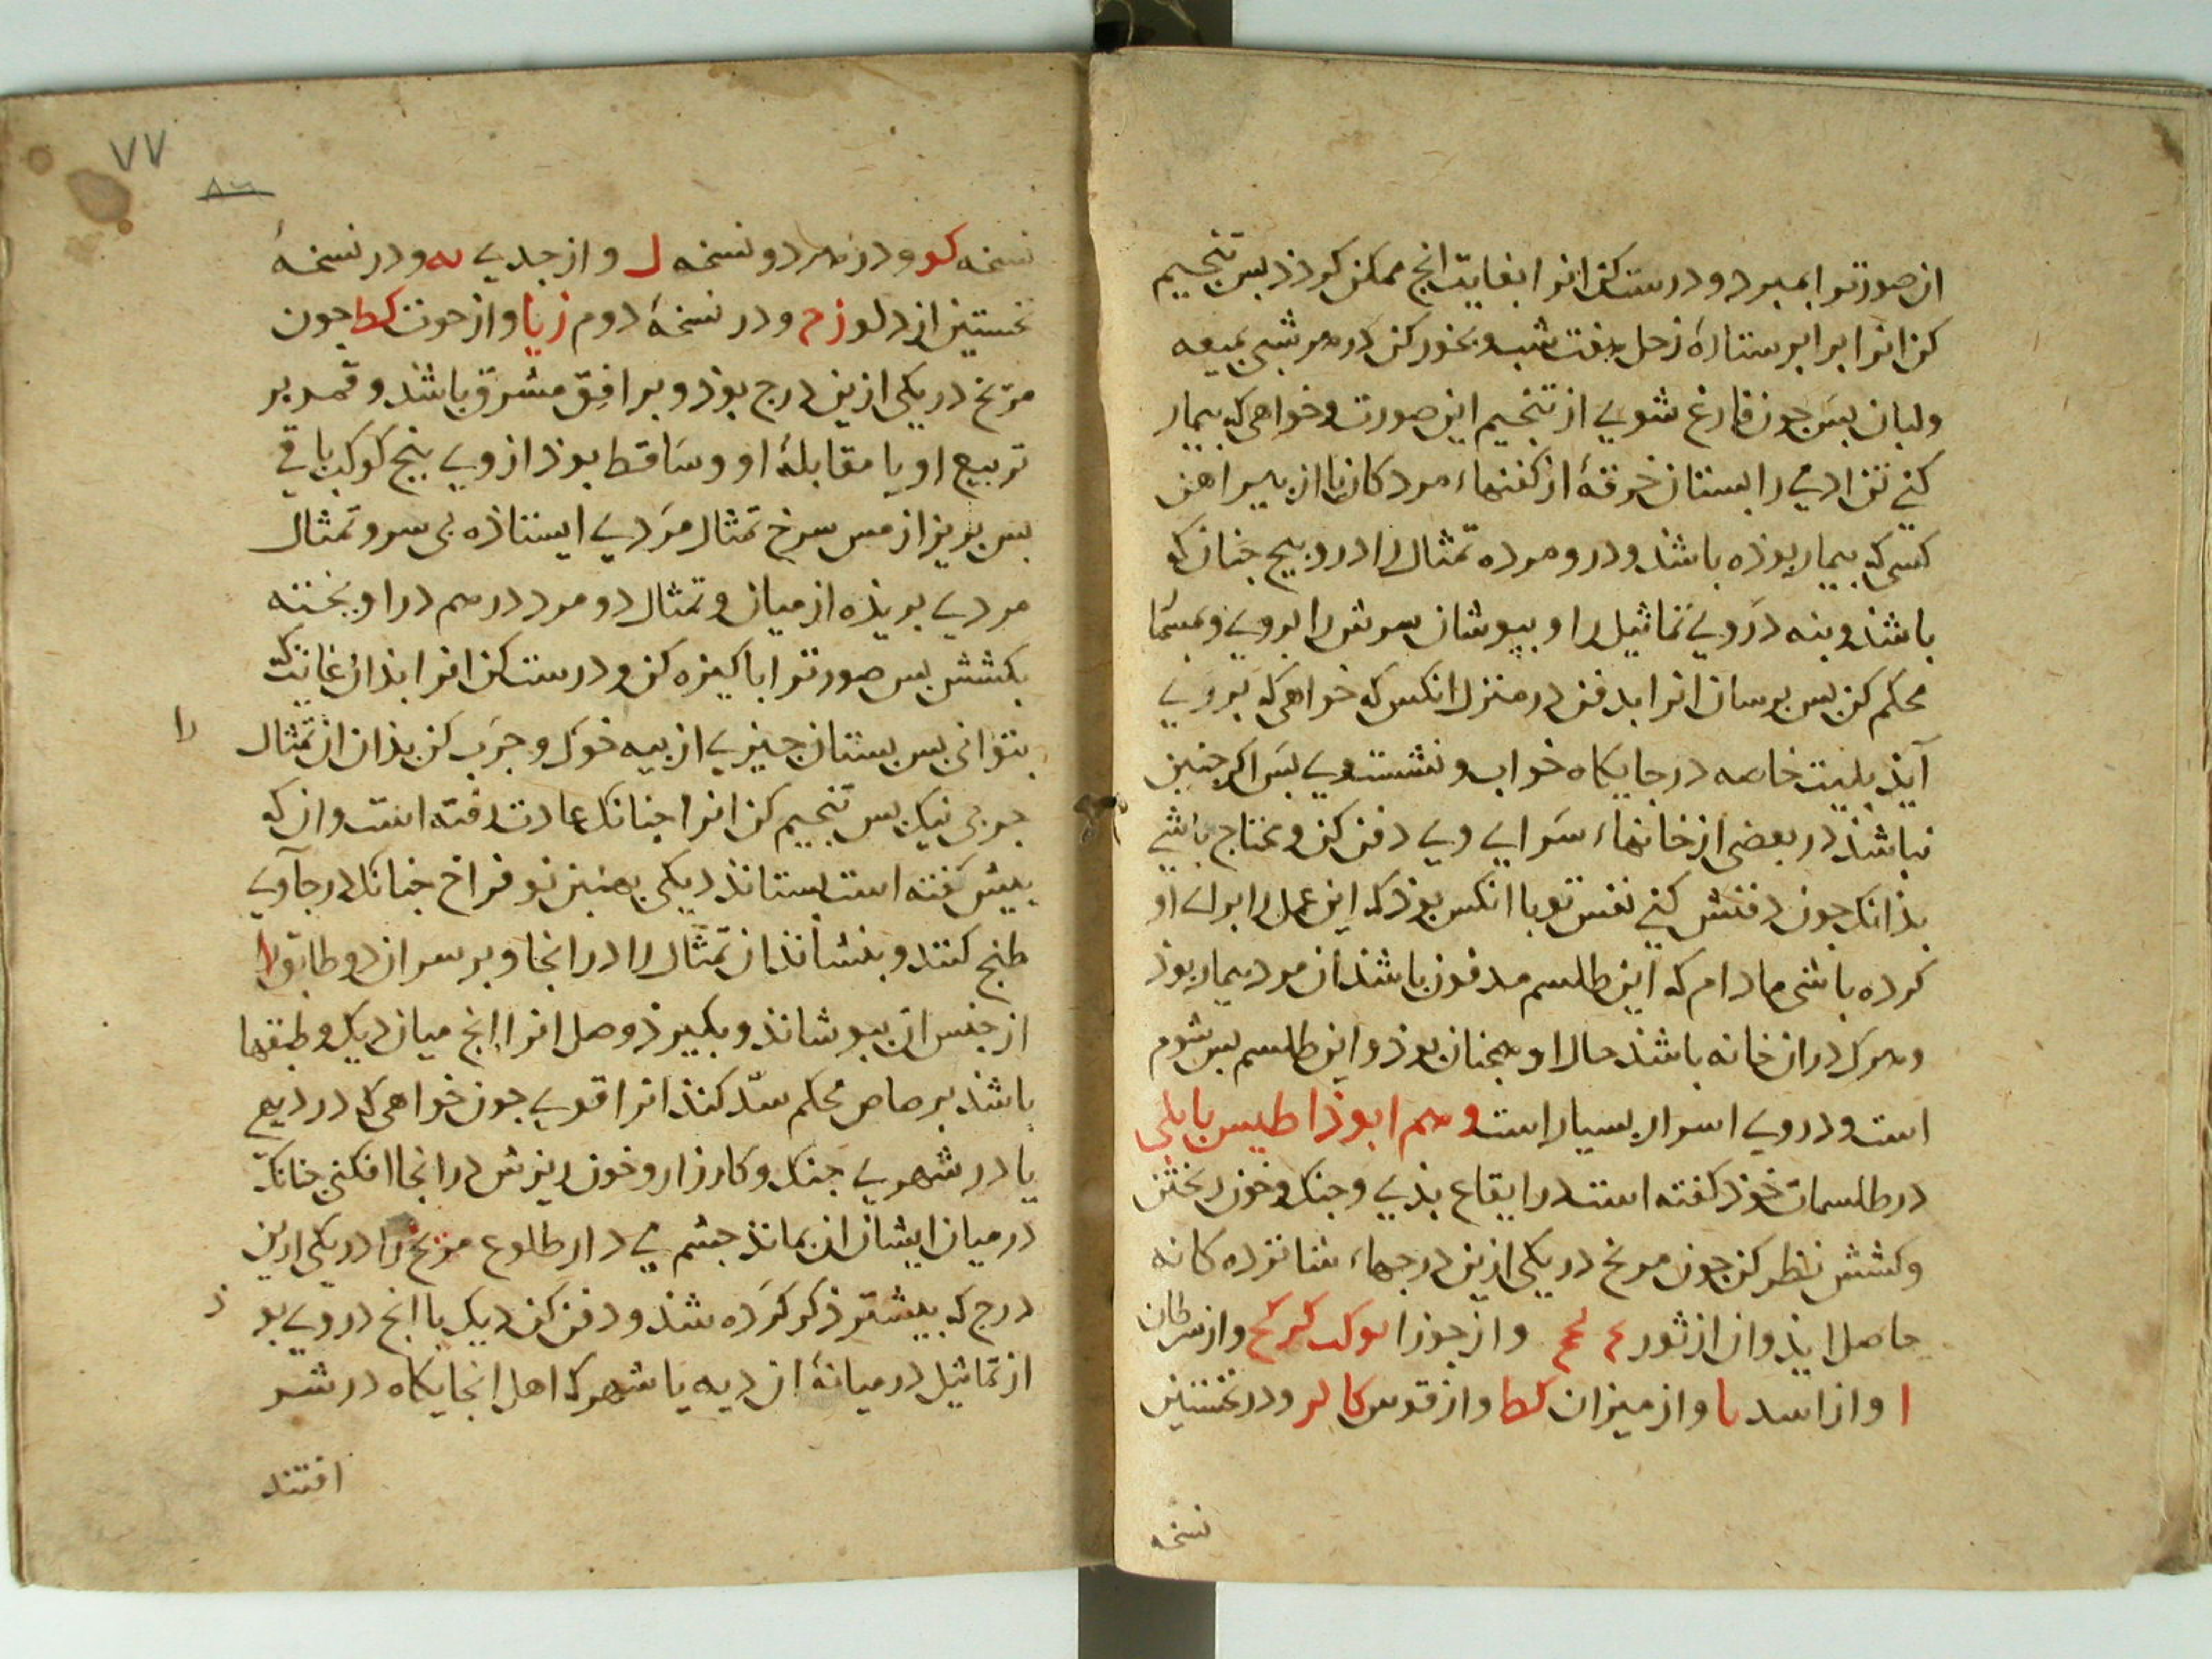 ان صورتو ابمبرد و درست کن انرا بغایت انچ ممکن کردذ بس تنجیم
کن انرا برابر ستارهٔ زحل هفت شب و بخور کن در هر شبی بمیعه
ولبان بس چون فارغ شوی از تنجیم این صورت و خواهی که بیمار
کنی تن ادمی را بستان خرقهٔ از کفنهاء مردکان یا از پیراهن
کسی که بیمار بوذه باشذ و درو مرده تمثال را درو بیچ چنان که
باشذ و بنه در روی تماثیل را و ببوشان سرش را بروی و
محکم کن بس برسان انرا بدفن در منزل انکس که خواهی که بروی
آیذ بلیت خاصه در جایکاه خواب و نشست وی بس اکر چنین
نباشذ در بعضی از خانهاء سرای وی دفن کن و محتاج باشی
بذانک چون دفنش کنی نفس تو با انکس بوذ که این عمل را برای او
کرده باشی مادام که این طلسم مدفون باشذ ان مرد بیمار بوذ
و هرک در ان خانه باشذ حال او همچنان بوذ و این طلسم بس شوم
است و در وی اسرار بسیار است و هم ابوذاطیس بابلی
در طلسمات خوذ کفته است در ایقاع بذی و جنک و خون ریختن
و کشش نظر کن چون مریخ در یکی ازین درجهاء شانزده کانه
حاصل ایذ و ان از ثور و از جوزا کح و از سرطان
ا و از اسد ٮا و از میزان کط و از قوس کا لر و در نخستین
نسخه
۷۷
نسخه کو و در هر دو نسخه ل و از جدی ٮه و در نسخهٔ
نخستین از دلو ز م و در نسخهٔ دوم ز یا و از حوت کط چون
مریخ در یکی ازین درج بوذ و بر افق مشرق باشذ و قمر بر
تربیع او یا مقابلهٔ او و ساقط بوذ از وی بنج کوکب باقی
بس بریز از مس سرخ تمثال مردی ایستاذه بی سر و تمثال
مردی بریذه از میان و تمثال دو مرد در هم دراویخته
بکشش بس صورتو اباکیزه کن و درست کن انرا بذان غایت که
بتوانی بس بستان چیزی از بیه خوک و چرب کن بذان ان تمثال
را
چربی نیک بس تنجیم کن انرا چنانک عادت رفته است و ان که
بیش کفته است بستانذ دیکی بهنین نو فراخ چنانک در جاوی
طبخ کنند و بنشانذ ان تمثال را در انجا و بر سر ان دو طابق را
از جنس ان ببوشانذ و بکیرذ وصل انرا انچ میان دیک و طبقها
باشذ برصاص محکم سدّ کنذ انرا قوی چون خواهی که در دیهی
یا در شهری جنک و کارزار و خون ریزش در انجا افکنی چنانک
در میان ایشان ان بمانذ چشم می دار طلوع مریخ را در یکی ازین
درج که بیشتر ذکر کرده شذ و دفن کن دیک با انچ در وی بو
ذ
از تماثیل در میانهٔ ان دیه یا شهر که اهل انجایکاه در شر
افتند